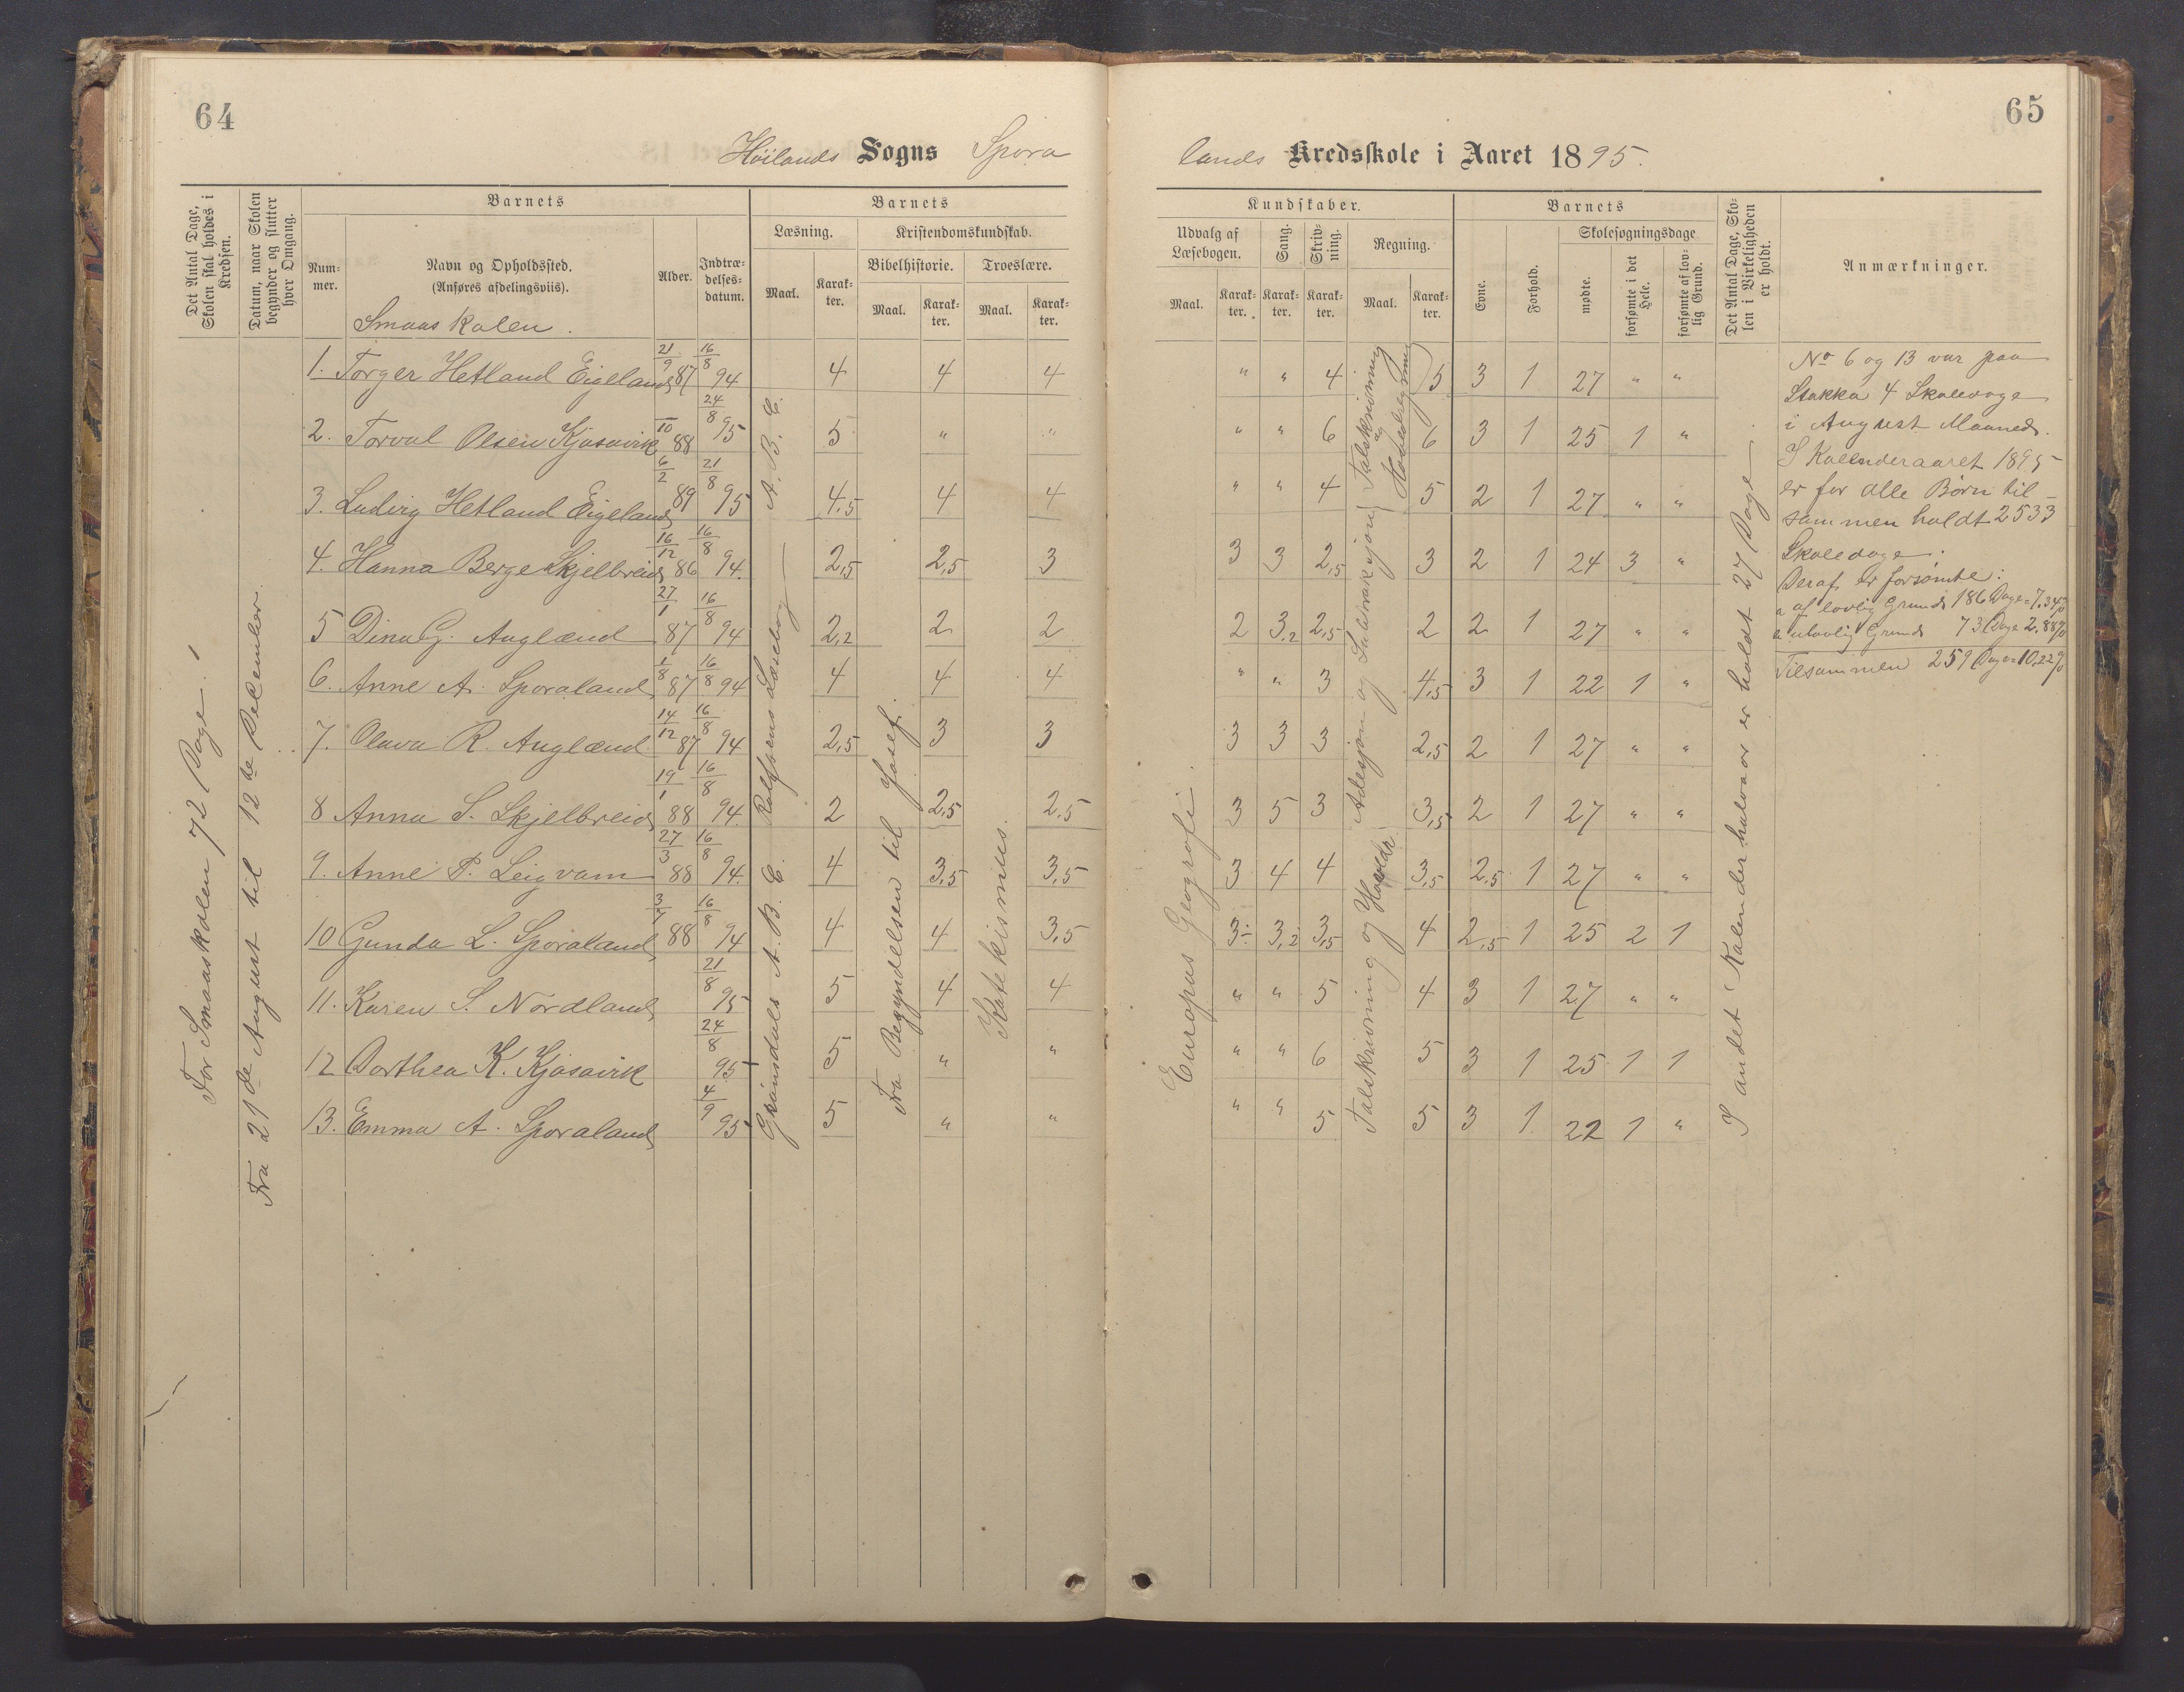 64
Höilands Sogns Spora
Det Antal Dage, Skolen skal holdes i Kredsen.
Datum, naar Skolen begynder og slutter hver Omgang.
Barnets
Num-
mer.
Navn og Opholdssted.
(Anføres afdelingsviis).
Smaaskolen.
Alder.
Indtræ-
delses-
datum.
Barnets
Læsning.
Kristendomskundskab.
Bibelhistorie.
Troeslære.
Maal.
Karak-
ter.
Maal.
Karak-
ter.
Maal.
Karak-
ter.
For Smaaskolen 72 Dage.
Fra 21de August til 12te December.
1. Torger Hetland Eigeland 21/9 87 16/8 94 4 4 4
2. Torval Olsen Kjosavik 10 88 24/8 95 5 " "
3. Ludvig Hetland Eigeland 6/2 89 21/8 95 4,5 4 4
4. Hanna Berge Skjelbreid 16/12 86 16/8 94. 2,5 2,5 3
5 Dina G. Auglænd 27/1 87 16/8 94 2,2 2 2
6. Anne A. Sporaland 1/8 87 16/8 94 4 4 4
7. Olava R. Auglænd 14/12 87 16/8 94 2,5 3 3
8 Anna S. Skjelbreid 19/1 88 16/8 94. 2 2,5 2,5
9. Anne P. Leigvam 27/3 88 16/8 94. 4 3,5 3,5
10 Gunda L. Sporaland 3/7 88 16/8 94 4 4 3,5
11. Karen S. Nordland 21/8 95 5 4 4
12 Dorthea K. Kjosavik 24/8 95 5 " "
13. Emma A. Sporaland 4/9 95 5 " "
A. B. C.
Rolfsens Læsebog
A. B. C.
Fra Begyndelsen til Josef.
Katekismus.
65
lands Kredsskole i Aaret 1895.
Kundskaber.
Udvalg af
Læsebogen.
Sang.
Skriv-
ning.
Regning.
Maal.
Karak-
ter.
Karak-
ter.
Karak-
ter.
Maal.
Karak-
ter.
Barnets
Evne.
Forhold.
Skolesøgningsdage
mødte.
forsømte i det Hele.
forsømte af lov-
lig Grund.
Det Antal Dage, Sko-
len i Virkeligheden
er holdt.
Anmærkninger.
" " 4 5 3 1 27 " "
" " 6 6 3 1 25 1 "
" " 4 5 2 1 27 " "
3 3 2,5 3 2 1 24 3 "
2 3,2 2,5 2 2 1 27 " "
" " 3 4,5 3 1 22 1 "
3 3 3 2,5 2 1 27 " "
3 5 3 3,5 2 1 27 " "
3 4 4 3,5 2,5 1 27 " "
3÷ 3,2 3,5 4 2,5 1 25 2 1
" " 5 4 3 1 27 " "
" " 6 5 3 1 25 1 1
" " 5 5 3 1 22 1 "
Europas Geografi.
Talskrivning og Hovedregning
Adesjon og Subtraksjon
Talskrivning og Hovedr.
I andet Kalenderhalvaar er holdt 27 Dage
No 6 og 13 var paa
Stokka 4 Skoledage
i August Maaned.
I Kalenderaaret 1895
er for alle Børn til-
sammen holdt 2533
Skoledage.
Deraf er forsömte:
a af lovlig Grund 186 Dage = 7.34%
a ulovlig Grund 73 Dage 2.88%
Tilsammen 259 Dage = 10,22%